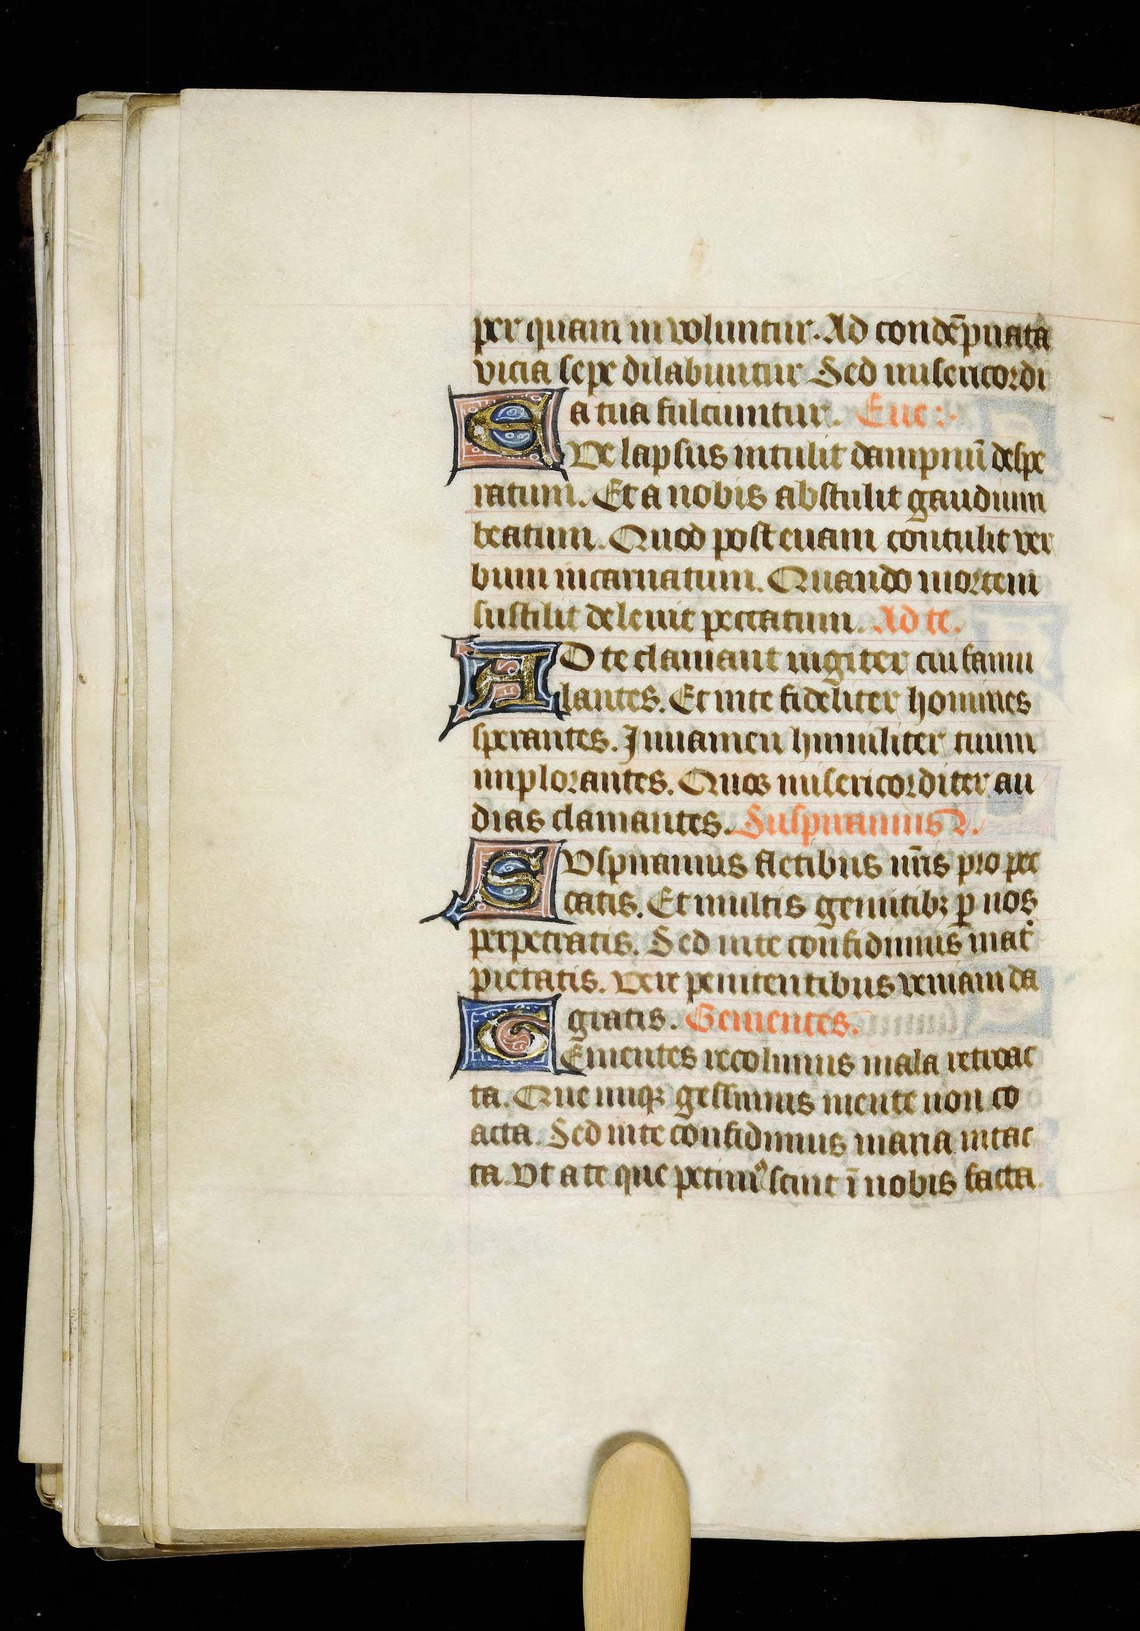 per quam in voluntur. Ad condēpnata
vicia sepe dilabuntur Sed misericordi
a tua fulciuntur. Eue:·
EVe lapsus intulit dampnū despe
ratum. Et a nobis abstulit gaudium
beatum. Quod post euam contulit ver
bum incarnatum. Quando mortem
sustilit deleuit peccatum. Ad te.
AD te clamant iugiter cui famu
lantes. Et in te fideliter homines
sperantes. Iuuamen humiliter tuum
implorantes. Quos misericorditer au
dias clamantes. Suspiramus
SVspiramus fletibus nr̄is pro pec
catis. Et multis gemitibꝫ ꝑ nos
perpetratis. Sed in te confidimus mat̄
pietatis. Vere penitentibus veniam da
gratis. Gementes.
GEmentes recolimus mala retroac
ta. Que nūqꝫ gessimus mente non co
acta. Sed in te confidimus maria intac
ta. Vt a te que petimꝰ sint ī nobis facta.